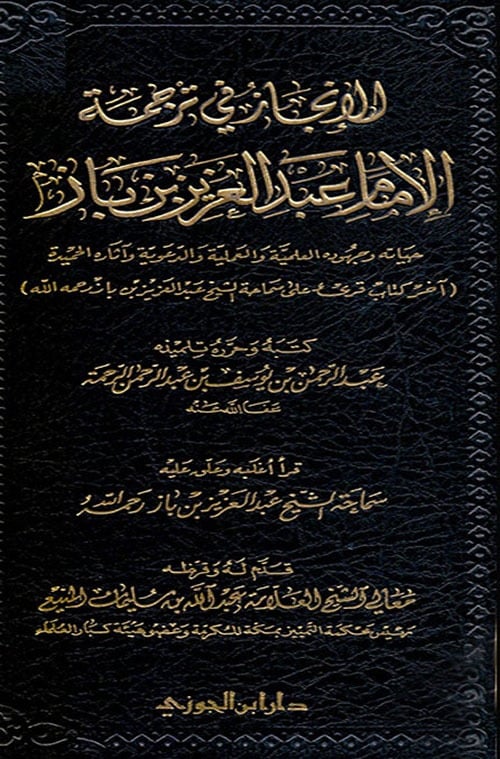 الإنجاز في ترجمة
الإمام عبد العزيز بن باز
حياته وجهوده العلمية والعملية والدعوية وآثاره الحميدة
( آخر كتاب قرئ على سماحة الشيخ عبد العزيز بن باز رحمه الله )
كتبه وحرره تلميذه
عبد الرحمن بن يوسف بن عبد الرحمن الرحمة
عفا الله عنه
قرأ أغلبه وعلق عليه
سماحة الشيخ عبد العزيز بن باز رحمه الله
قدم له وقرظه
معالي الشيخ العلامة عبد الله بن سليمان المنيع
رئيس محكمة التمييز بمكة المكرمة وعضو هيئة كبار العلماء
دار ابن الجوزي